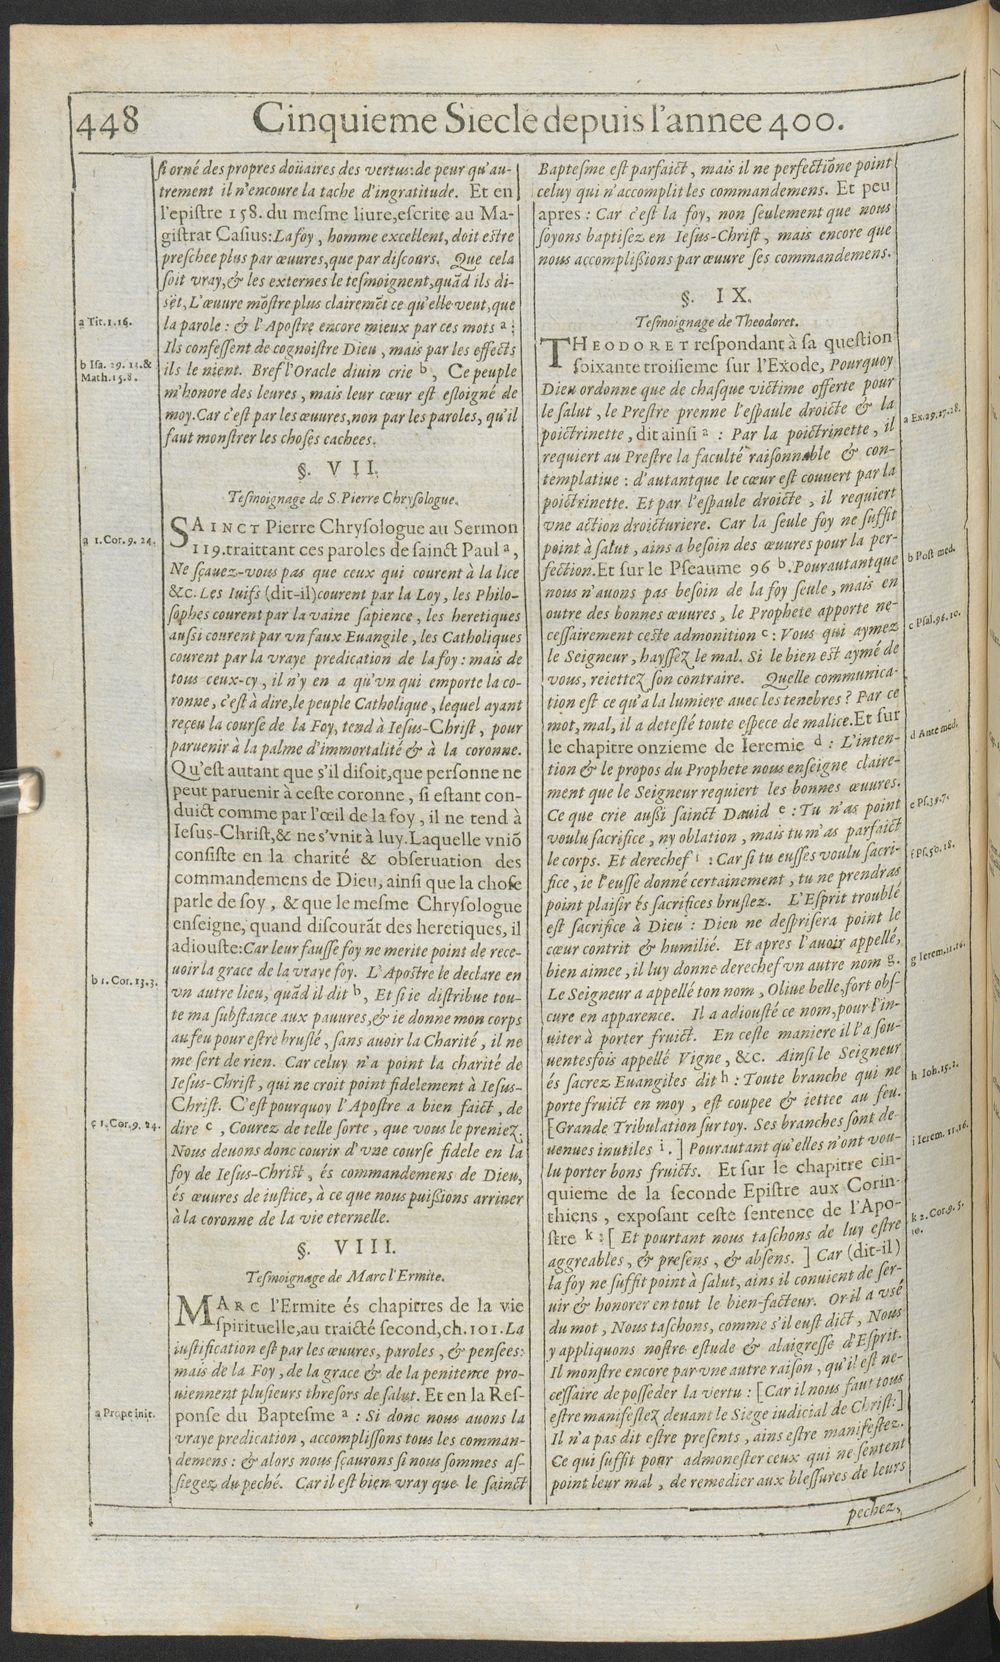 448
Cinquieme Siecle depuis l'annee 400.
si orné des propres doüaires des vertus: de peur qu'au-
trement il n'encoure la tache d'ingratitude. Et en
l'epistre 158. du mesme liure, escrite au Ma-
gistrat Casius: La foy, homme excellent, doit estre
preschee plus par œuures, que par discours. Que cela
soit vray, & les externes le tesmoignent, quãd ils di-
sẽt, L'œuure mõstre plus clairemẽt ce qu'elle veut, que
la parole: & l'Apostre encore mieux par ces mots a:
Ils confessent de cognoistre Dieu, mais par les effects
ils le nient. Bref l'Oracle diuin crie b, Ce peuple
m'honore des leures, mais leur cœur est esloigné de
moy. Car c'est par les œuures, non par les paroles, qu'il
faut monstrer les choses cachees.
a Tit. 1. 16.
b Isa. 29. 13. &
Math. 15. 8.
§. VII.
Tesmoignage de S. Pierre Chrysologue.
SAINCT Pierre Chrysologue au Sermon
119. traittant ces paroles de sainct Paul a,
Ne sçauez-vous pas que ceux qui courent à la lice
&c. Les Iuifs (dit-il) courent par la Loy, les Philo-
sophes courent par la vaine sapience, les heretiques
aussi courent par vn faux Euangile, les Catholiques
courent par la vraye predication de la foy: mais de
tous ceux-cy, il n'y en a qu'vn qui emporte la co-
ronne, c'est à dire, le peuple Catholique, lequel ayant
reçeu la course de la Foy, tend à Iesus-Christ, pour
paruenir à la palme d'immortalité & à la coronne.
Qu'est autant que s'il disoit, que personne ne
peut paruenir à ceste coronne, si estant con-
duict comme par l'œil de la foy, il ne tend à
Iesus-Christ, & ne s'vnit à luy. Laquelle vniõ
consiste en la charité & obseruation des
commandemens de Dieu, ainsi que la chose
parle de soy, & que le mesme Chrysologue
enseigne, quand discourãt des heretiques, il
adiouste: Car leur fausse foy ne merite point de rece-
uoir la grace de la vraye foy. L'Apostre le declare en
vn autre lieu, quãd il dit b, Et si ie distribue tou-
te ma substance aux pauures, & ie donne mon corps
au feu pour estre bruslé, sans auoir la Charité, il ne
me sert de rien. Car celuy n'a point la charité de
Iesus-Christ, qui ne croit point fidelement à Iesus-
Christ. C'est pourquoy l'Apostre a bien faict, de
dire c, Courez de telle sorte, que vous le preniez.
Nous deuons donc courir d'vne course fidele en la
foy de Iesus-Christ, és commandemens de Dieu,
és œuures de iustice, à ce que nous puissions arriuer
à la coronne de la vie eternelle.
a 1. Cor. 9. 24.
b 1. Cor. 13. 3.
c 1. Cor. 9. 24.
§. VIII.
Tesmoignage de Marc l'Ermite.
MARC l'Ermite és chapitres de la vie
spirituelle, au traicté second, ch. 101. La
iustification est par les œuures, paroles, & pensees:
mais de la Foy, de la grace & de la penitence pro-
uiennent plusieurs thresors de salut. Et en la Res-
ponse du Baptesme a: Si donc nous auons la
vraye predication, accomplissons tous les comman-
demens: & alors nous sçaurons si nous sommes as-
siegez du peché. Car il est bien vray que le sainct
a Prope init.
Baptesme est parfaict, mais il ne perfectiõne point
celuy qui n'accomplit les commandemens. Et peu
apres: Car c'est la foy, non seulement que nous
soyons baptisez en Iesus-Christ, mais encore que
nous accomplissions par œuure ses commandemens.
§. IX.
Tesmoignage de Theodoret.
THEODORET respondant à sa question
soixante troisieme sur l'Exode, Pourquoy
Dieu ordonne que de chasque victime offerte pour
le salut, le Prestre prenne l'espaule droicte & la
poictrinette, dit ainsi a: Par la poictrinette, il
requiert au Prestre la faculté raisonnable & con-
templatiue: d'autant que le cœur est couuert par la
poictrinette. Et par l'espaule droicte, il requiert
vne action droicturiere. Car la seule foy ne suffit
point à salut, ains a besoin des œuures pour la per-
fection. Et sur le Pseaume 96 b. Pourautant que
nous n'auons pas besoin de la foy seule, mais en
outre des bonnes œuures, le Prophete apporte ne-
cessairement ceste admonition c: Vous qui aymez
le Seigneur, hayssez le mal. Si le bien est aymé de
vous, reiettez son contraire. Quelle communica-
tion est ce qu'a la lumiere auec les tenebres? Par ce
mot, mal, il a detesté toute espece de malice. Et sur
le chapitre onzieme de Ieremie d: L'inten-
tion & le propos du Prophete nous enseigne claire-
ment que le Seigneur requiert les bonnes œuures.
Ce que crie aussi sainct Dauid e: Tu n'as point
voulu sacrifice, ny oblation, mais tu m'as parfaict
le corps. Et derechef f: Car si tu eusses voulu sacri-
fice, ie l'eusse donné certainement, tu ne prendras
point plaisir és sacrifices bruslez. L'Esprit troublé
est sacrifice à Dieu: Dieu ne desprisera point le
cœur contrit & humilié. Et apres l'auoir appellé,
bien aimee, il luy donne derechef vn autre nom g.
Le Seigneur a appellé ton nom, Oliue belle, fort obs-
cure en apparence. Il a adiousté ce nom, pour l'in-
uiter à porter fruict. En ceste maniere il l'a sou-
uentesfois appellé Vigne, &c. Ainsi le Seigneur
és sacrez Euangiles dit h: Toute branche qui ne
porte fruict en moy, est coupee & iettee au feu.
[Grande Tribulation sur toy. Ses branches sont de-
uenues inutiles i.] Pourautant qu'elles n'ont vou-
lu porter bons fruicts. Et sur le chapitre cin-
quieme de la seconde Epistre aux Corin-
thiens, exposant ceste sentence de l'Apo-
stre k: [Et pourtant nous taschons de luy estre
aggreables, & presens, & absens.] Car (dit-il)
la foy ne suffit point à salut, ains il conuient de ser-
uir & honorer en tout le bien-facteur. Or il a vsé
du mot, Nous taschons, comme s'il eust dict, Nous
y appliquons nostre estude & alaigresse d'Esprit.
Il monstre encore par vne autre raison, qu'il est ne-
cessaire de posseder la vertu: [Car il nous faut tous
estre manifestez deuant le Siege iudicial de Christ:]
Il n'a pas dit estre presents, ains estre manifestez.
Ce qui suffit pour admonester ceux qui ne sentent
point leur mal, de remedier aux blessures de leurs
a Ex. 29. 27. 28.
b Post med.
c Psal. 96. 10.
d Ante med.
e Ps. 39. 7.
f Ps. 50. 18.
g Ierem. 11. 16.
h Ioh. 15. 2.
i Ierem. 11. 16.
k 2. Cor. 9. 5.
10.
pechez,